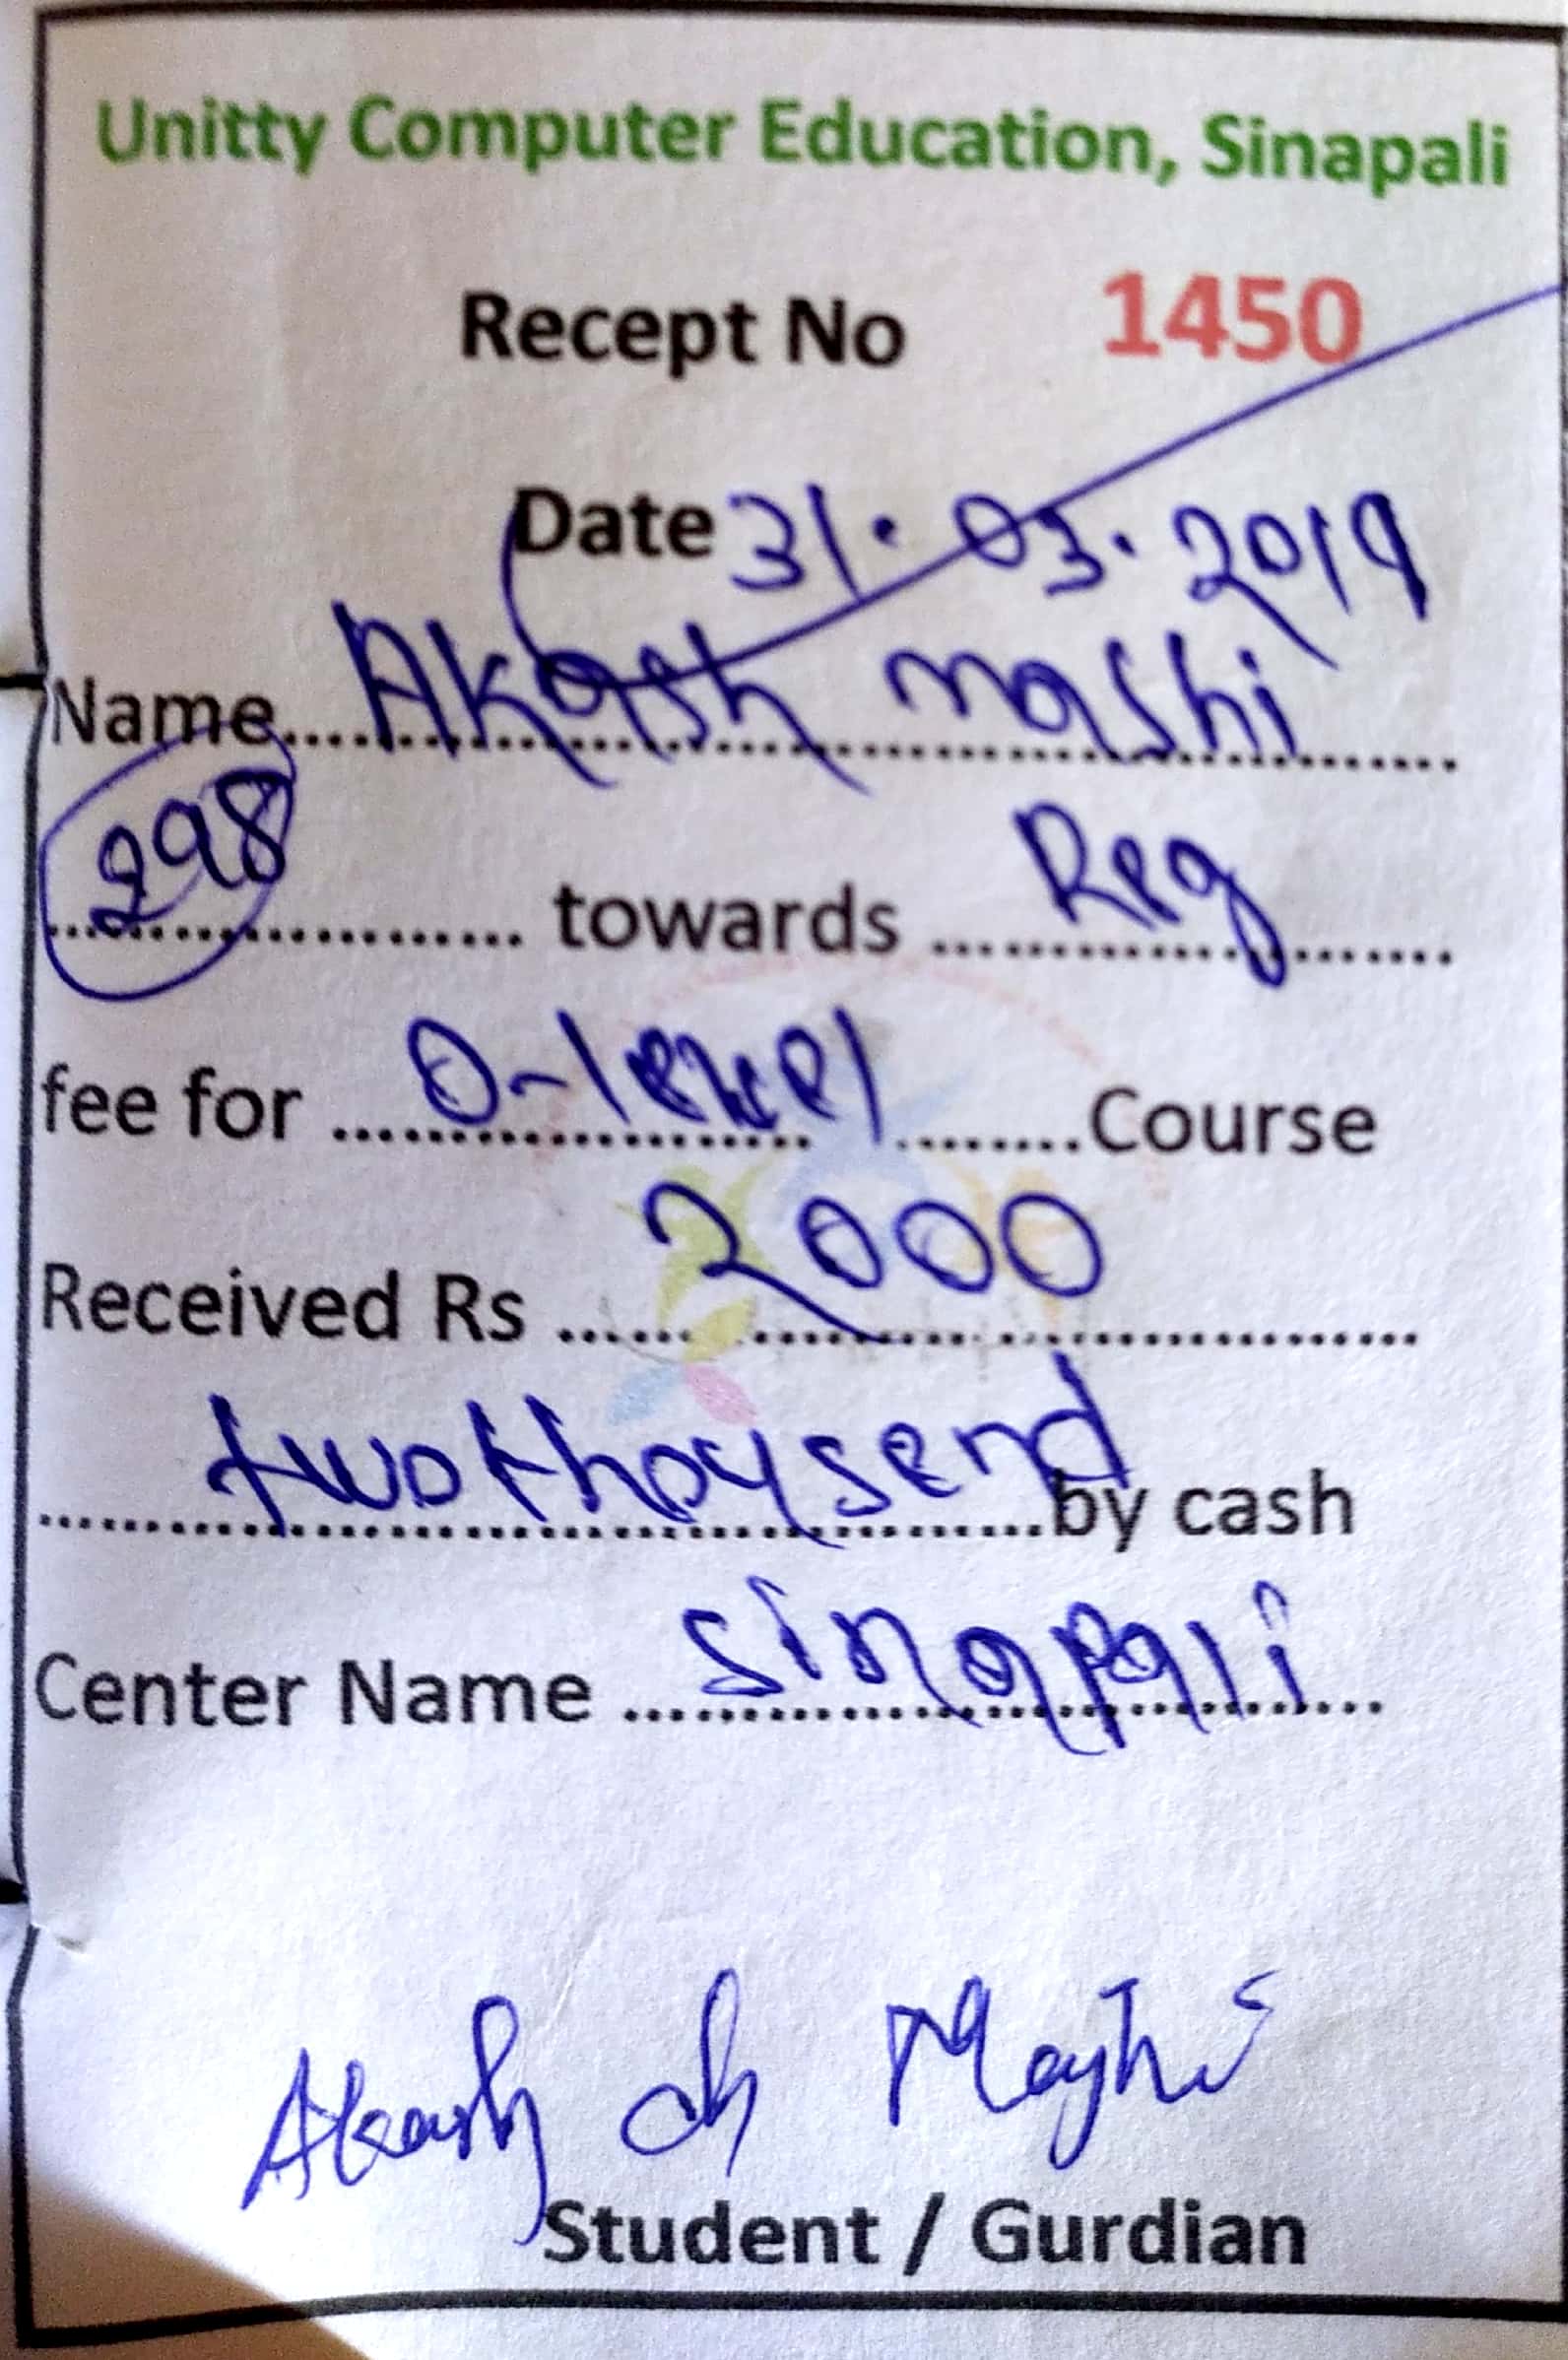 Unitty Computer Education, Sinapali
Recept No 1450
Date 31.03.2019
Name Akash mashi
298 towards Reg
fee for O-level Course
Received Rs 2000
two thousend by cash
Center Name Sinapali
Akash ch Majhi
Student / Gurdian